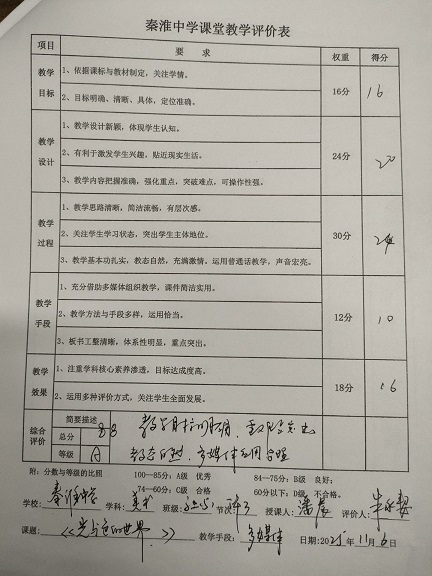 秦淮中学课堂教学评价表
项目 要 求 权重 得分
教学目标 1、依据课标与教材制定，关注学情。 16分 16
2、目标明确、清晰、具体，定位准确。
教学设计 1、教学设计新颖，体现学生认知。 24分 20
2、有利于激发学生兴趣，贴近现实生活。
3、教学内容把握准确，强化重点，突破难点，可操作性强。
教学过程 1、教学思路清晰，简洁流畅，有层次感。 30分
2、关注学生学习状态，突出学生主体地位。
3、教学基本功扎实，教态自然，充满激情。运用普通话教学，声音宏亮。
教学手段 1、充分借助多媒体组织教学，课件简洁实用。 12分 10
2、教学方法与手段多样，运用恰当。
3、板书工整清晰，体系性明显，重点突出。
教学效果 1、注重学科核心素养渗透，目标达成度高。 18分 16
2、运用多种评价方式，关注学生全面发展。
综合评价 简要描述 教学目标明确
总分 88
等级 A 教态自然，多媒体运用合理
附：分数与等级的比照 100—85分：A级 优秀 84—75分：B级 良好；
74—60分：C级 合格 60分以下：D级 不合格。
学校：秦淮中学 学科：美术 班级： 节次： 授课人：潘 评价人：
课题：《光与色的世界》 教学手段：多媒体 日期:2025年11月6日